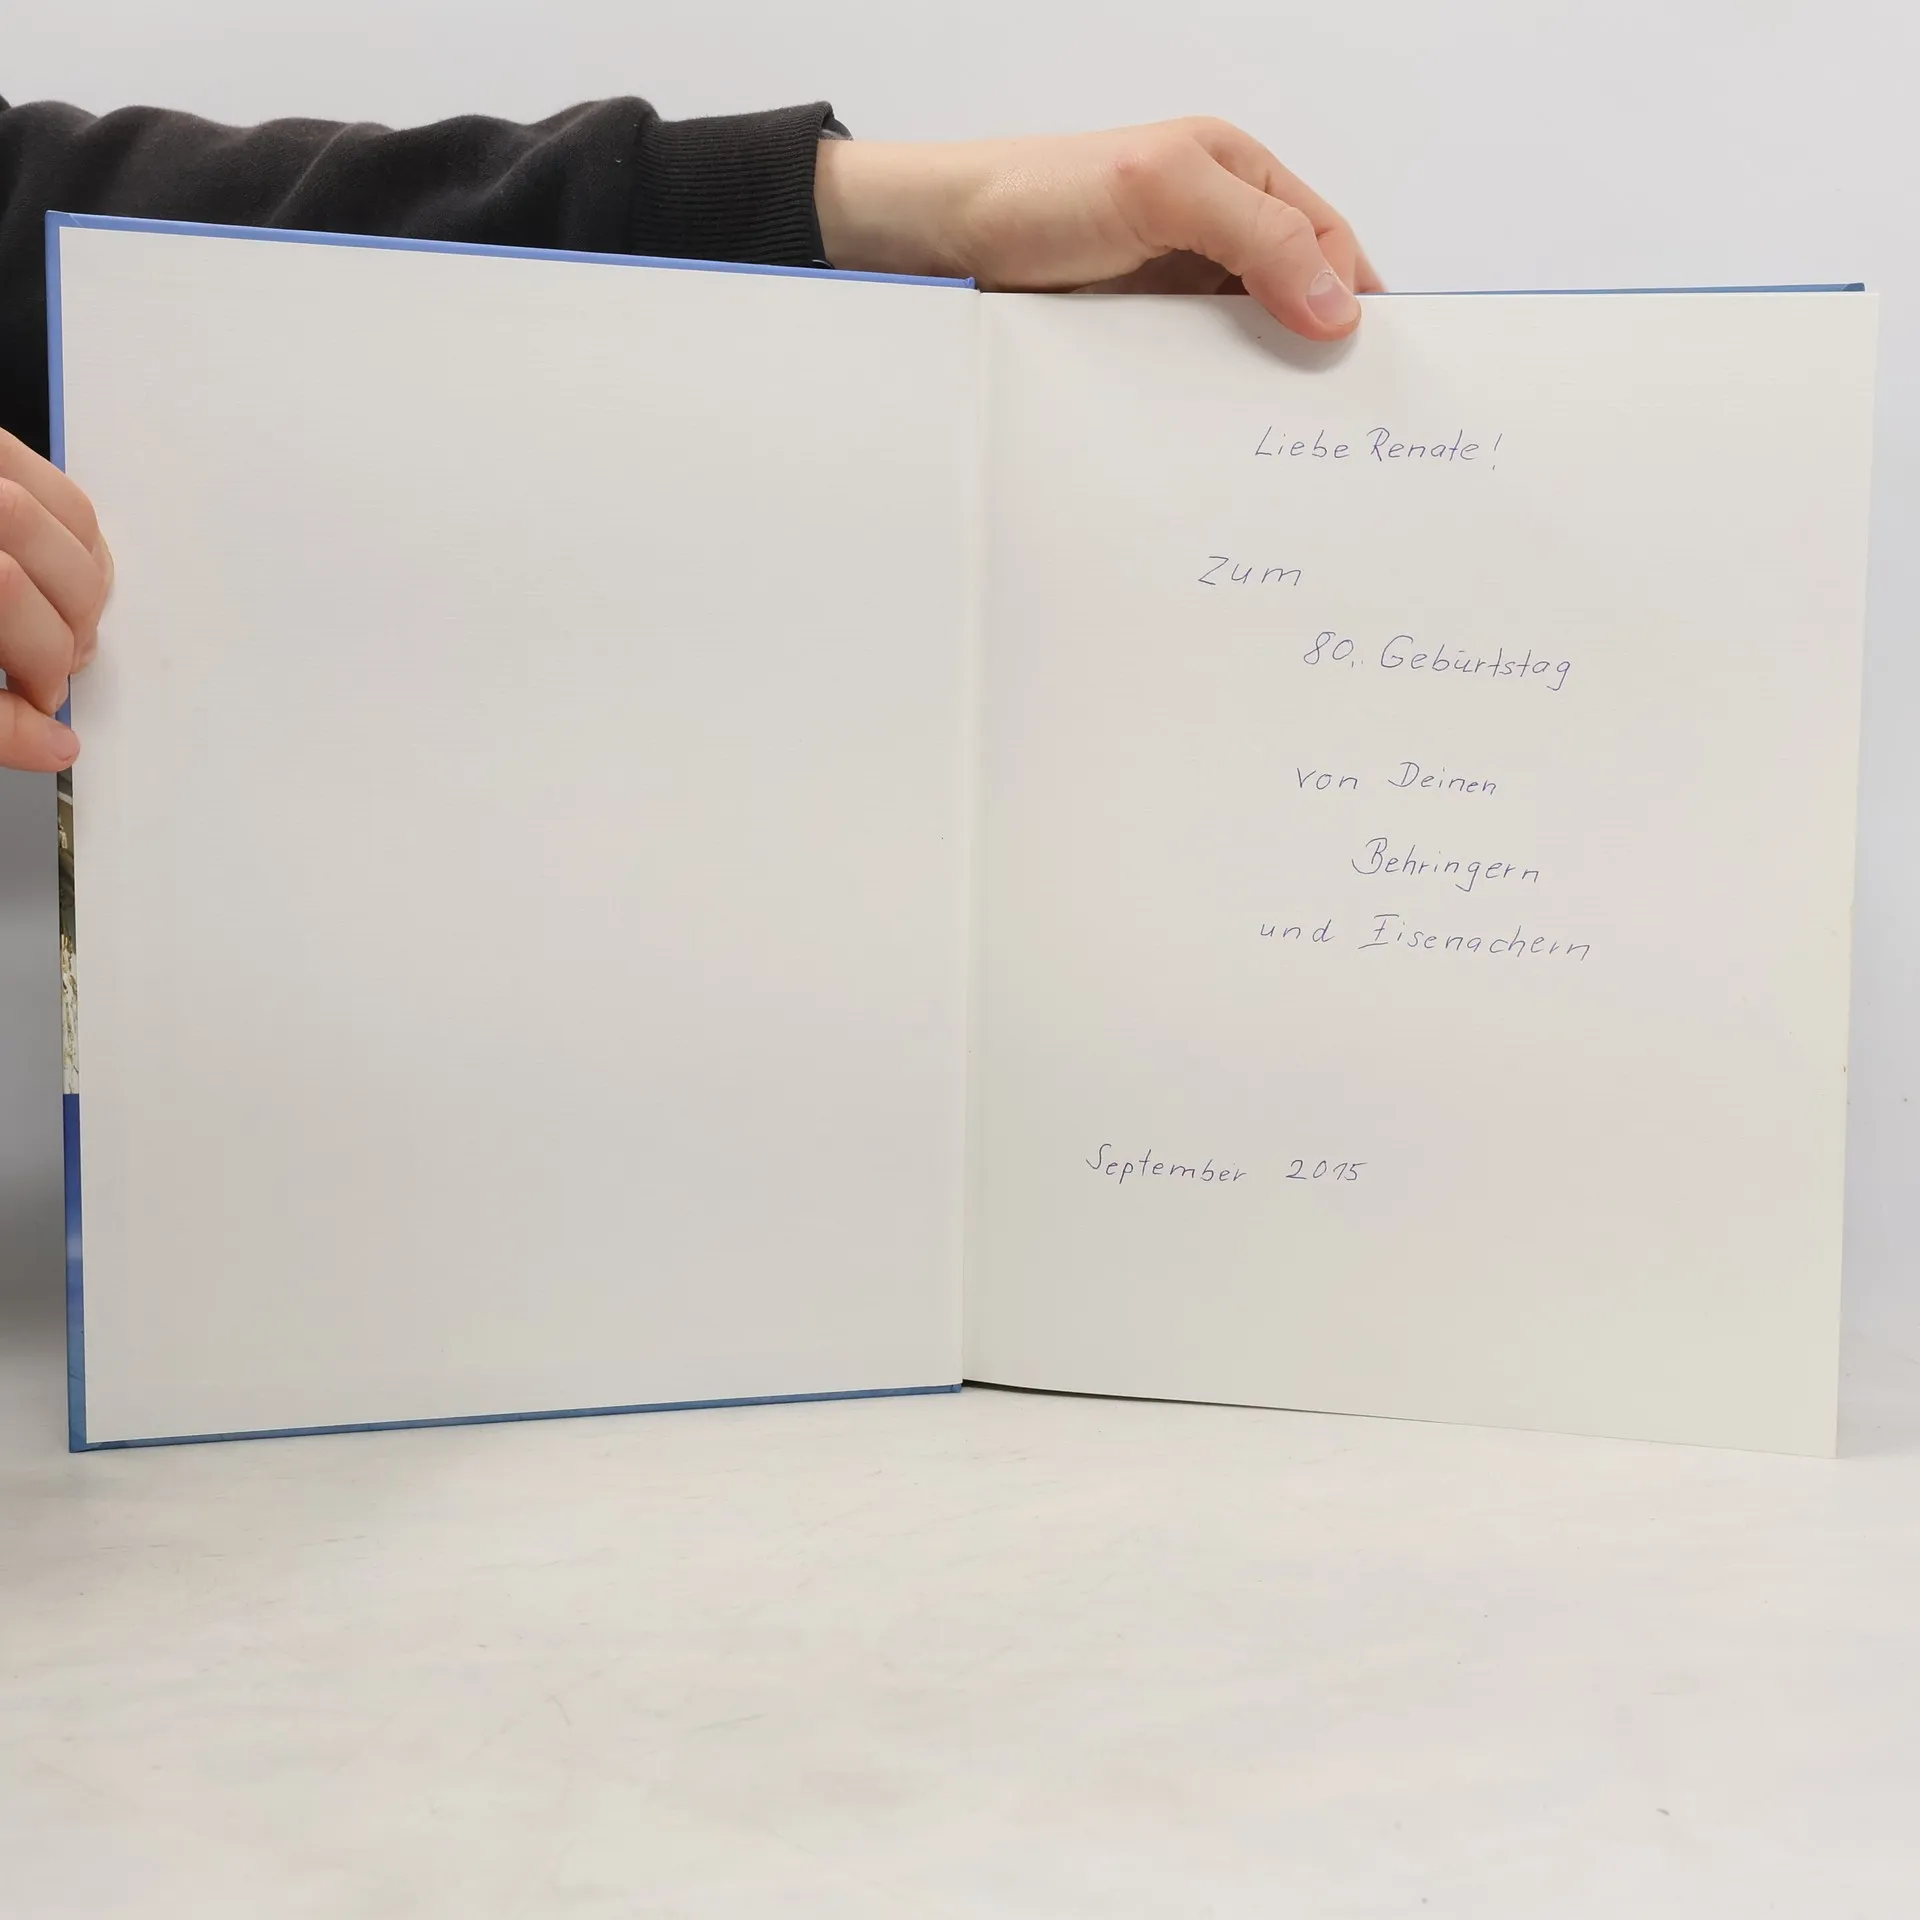 Liebe Renate!
Zum
80. Geburtstag
von Deinen
Behringern
und Eisenachern
September 2015